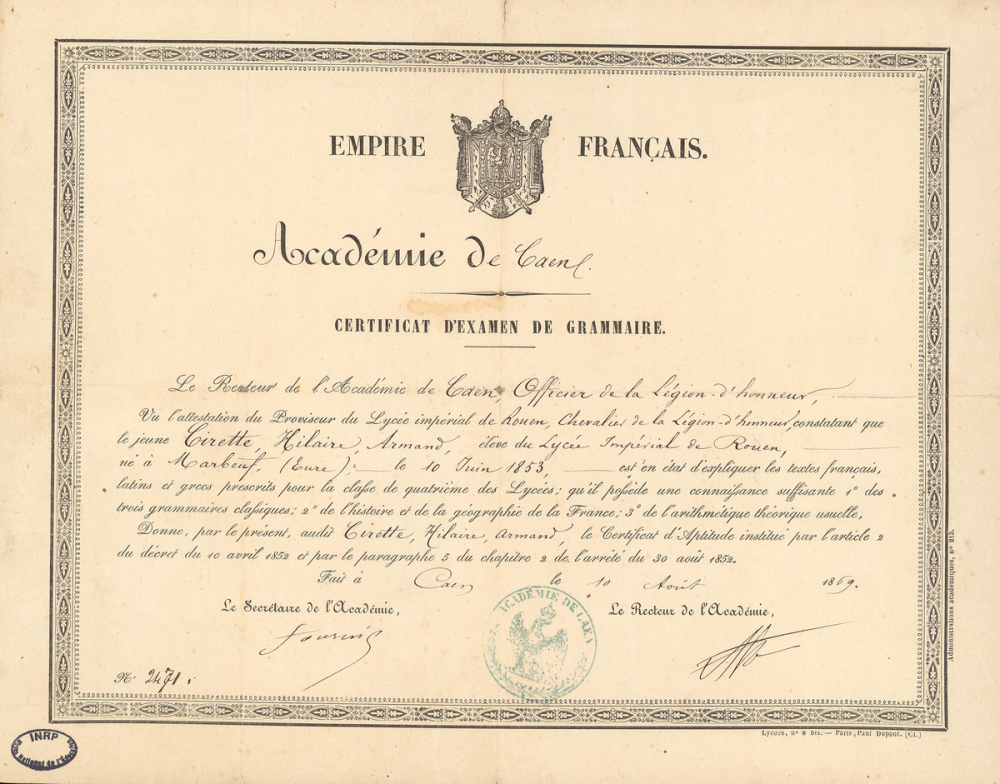 EMPIRE FRANÇAIS.
Académie de Caen.
CERTIFICAT D'EXAMEN DE GRAMMAIRE.
Le Recteur de l'Académie de Caen, Officier de la Légion-d'honneur,
Vu l'attestation du Proviseur du Lycée impérial de Rouen, Chevalier de la Légion-d'honneur, constatant que
le jeune Cirette, Hilaire, Armand, élève du Lycée Impérial de Rouen,
né à Marbeuf, (Eure), le 10 Juin 1853, est en état d'expliquer les textes français,
latins et grecs prescrits pour la classe de quatrième des Lycées; qu'il possède une connaissance suffisante 1° des
trois grammaires classiques; 2° de l'histoire et de la géographie de la France; 3° de l'arithmétique théorique usuelle,
Donne, par le présent, audit Cirette, Hilaire, Armand, le Certificat d'Aptitude institué par l'article 2
du décret du 10 avril 1852 et par le paragraphe 5 du chapitre 2 de l'arrêté du 30 août 1852.
Fait à Caen le 10 Août 1869.
Le Secrétaire de l'Académie, Le Recteur de l'Académie,
ACADÉMIE DE CAEN
N° 2471.
Administrations académiques, n° 213.
Lycées, n° 8 bis. — Paris, Paul Dupont. (Cl.)
INRP